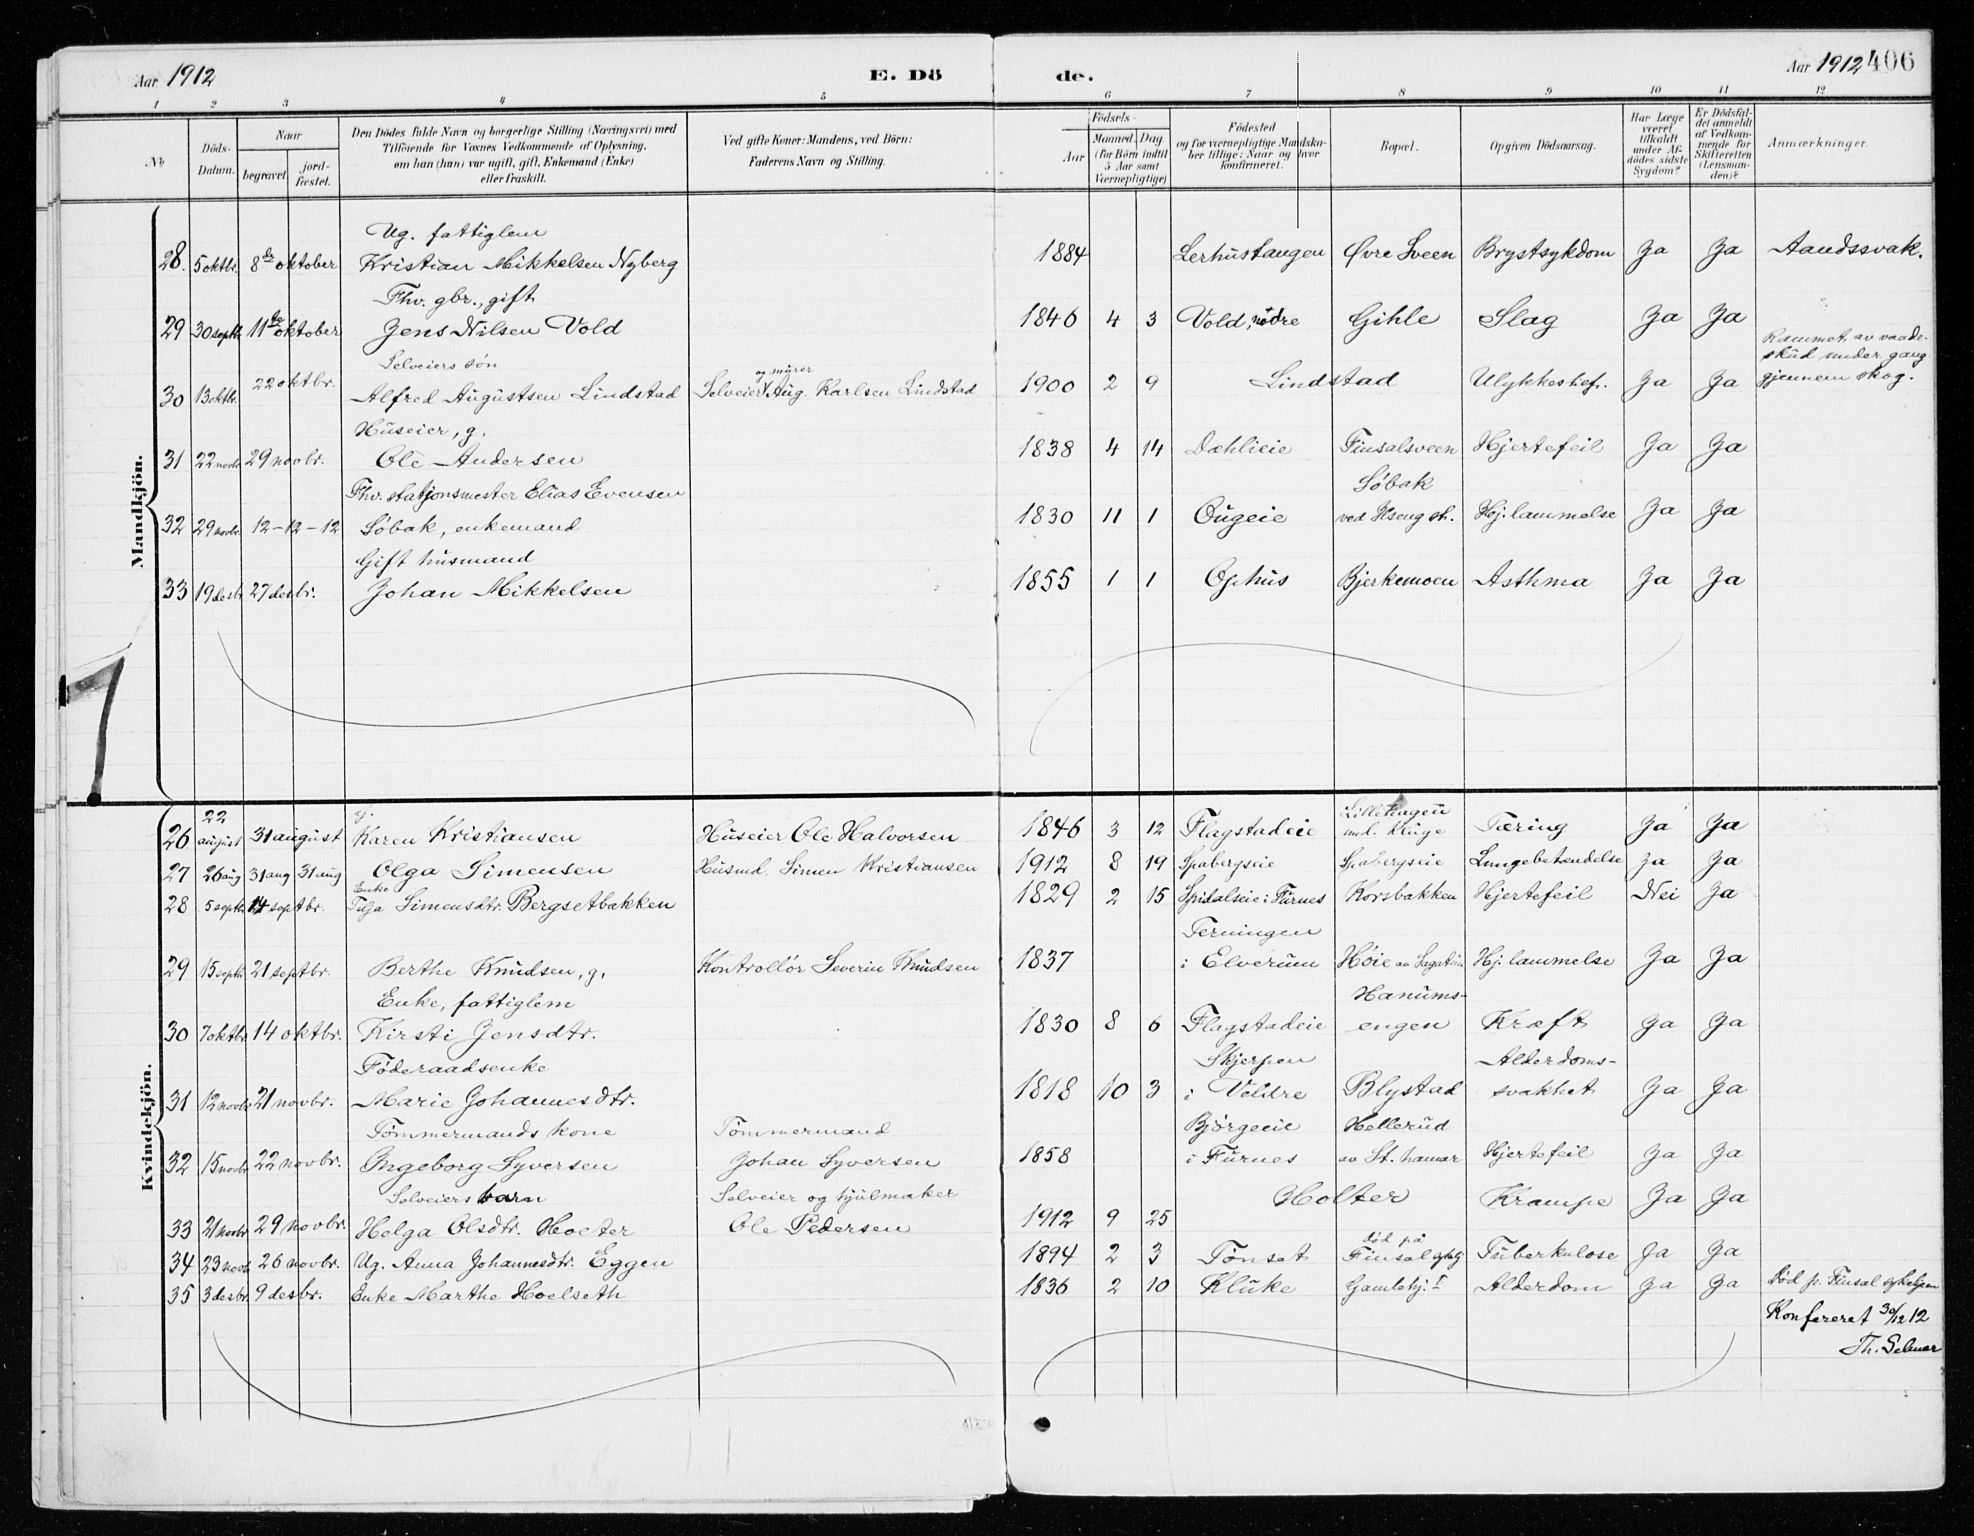 Aar 1912 E. Dö de. Aar 1912 406
1 2 3 4 5 6 7 8 9 10 11 12
No
Döds-Datum.
Naar
begravet.
jord-fæstet.
Den Dödes fulde Navn og borgerlige Stilling (Næringsvei) med
Tilföiende for Voxnes Vedkommende af Oplysning,
om han (hun) var ugift, gift, Enkemand (Enke)
eller fraskilt.
Ved gifte Koner: Mandens, ved Börn:
Faderens Navn og Stilling.
Födsels-
Aar
Maaned. Dag.
(for Börn indtil
5 Aar samt
Værnepligtige)
Födested
og for værnepligtige Mandska-
ber tillige: Naar og hvor
konfirmeret.
Bopæl.
Opgiven Dödsaarsag.
Har Læge
været
tilkaldt
under Af-
dödes sidste
Sygdom?
Er Dödsfal-
det anmeldt
af Vedkom-
mende for
Skifteretten
(Lensman-
den)?
Anmærkninger.
Mandkjön.
Ug. fattiglem
28. 5 oktbr. 8de oktober Kristian Mikkelsen Nyberg 1884 Lerhustangen Øvre Sveen Brystsykdom Ja Ja Aandssvak.
Fhv. gbr., gift
29 30 septb. 11te oktober Jens Nilsen Vold 1846 4 3 Vold, nödre Gihle Slag Ja Ja
Selveiers søn
og murer
Rammet av vaade-
skud under gang
gjennem skog.
30 13 oktbr. 22 oktbr. Alfred Augustsen Lindstad Selveier Aug. Karlsen Lindstad 1900 2 9 Lindstad Ulykkeshef. Ja Ja
Huseier, g.
31 22 novbr. 29 novbr. Ole Andersen 1838 4 14 Dæhlieie Finsalsveen Hjertefeil Ja Ja
Fhv. statjonsmester Elias Evensen Søbak
32 29 novbr. 12-12-12 Søbak, enkemand 1830 11 1 Ougeie ved Hseng st. Hj. lammelse Ja Ja
Gift husmand
33 19 desbr. 27 desbr. Johan Mikkelsen 1855 1 1 Ophus Bjerkemoen Asthma Ja Ja
7
Kvindekjön.
g. Lillehagen
26 22 august 31 august Karen Kristiansen Huseier Ole Halvorsen 1846 3 12 Flagstadeie und. Kluge Tæring Ja Ja
27 26 aug 31 aug 31 aug Olga Simensen Husmd. Simen Kristiansen 1912 8 19 Spabergseie Spabergseie Lungebetendelse Ja Ja
Enke
28 5 septb. 14 septbr. Tilja Simensdtr. Bergsetbakken 1829 2 15 Spidalseie i Furnes Korsbakken Hjertefeil Nei Ja
Terningen
29 15 septb. 21 septbr. Berthe Knudsen, g. Kontrollør Severin Knudsen 1837 i Elverum Høie av Sagatun Hj. lammelse Ja Ja
Enke, fattiglem Hanums-
30 7 oktbr. 14 oktbr. Kirsti Jensdtr. 1830 8 6 Flagstadeie engen Kræft Ja Ja
Føderaadsenke Skjerpen Alderdoms-
31 12 novbr. 21 novbr. Marie Johannesdtr. 1818 10 3 i Veldre Blystad svakhet Ja Ja
Tømmermands kone Tømmermand Bjørgeeie Hellerud
32 15 novbr. 22 novbr. Ingeborg Syversen Johan Syversen 1858 i Furnes av St. hamar Hjertefeil Ja Ja
Selveiers barn Selveier og hjulmaker
33 21 novbr 29 novbr. Helga Olsdtr. Holter Ole Pedersen 1912 9 25 Holter Krampe Ja Ja
død på
34 23 novb. 26 novbr. Ug. Anna Johannesdtr. Eggen 1894 2 3 Tønset Finsal sykehj Tuberkulose Ja Ja
35 3 desbr. 9 desbr. Enke Marthe Hoelseth 1836 2 10 Kluke Gamlehj. Alderdom Ja Ja Død p. Finsal sykehjem
Konfereret 30/12 12
Th. Selmer